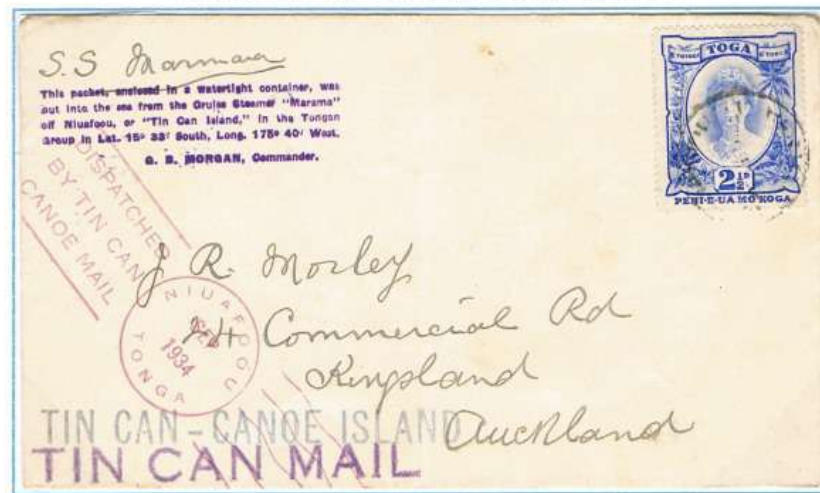 S.S Marama
This packet, enclosed in a watertight container, was
put into the sea from the Cruise Steamer "Marama"
off Niuafoou, or "Tin Can Island," in the Tongan
Group in Lat. 15º 33' South, Long. 175º 40' West.
G. B. MORGAN, Commander.
TOGA
2½D
PENI·E·UA MO KOGA
DISPATCHED
BY TIN CAN
CANOE MAIL
J R. Morley
24 Commercial Rd
Kingsland
Auckland
NIUAFOOU
SEP
1934
TONGA
TIN CAN - CANOE ISLAND
TIN CAN MAIL